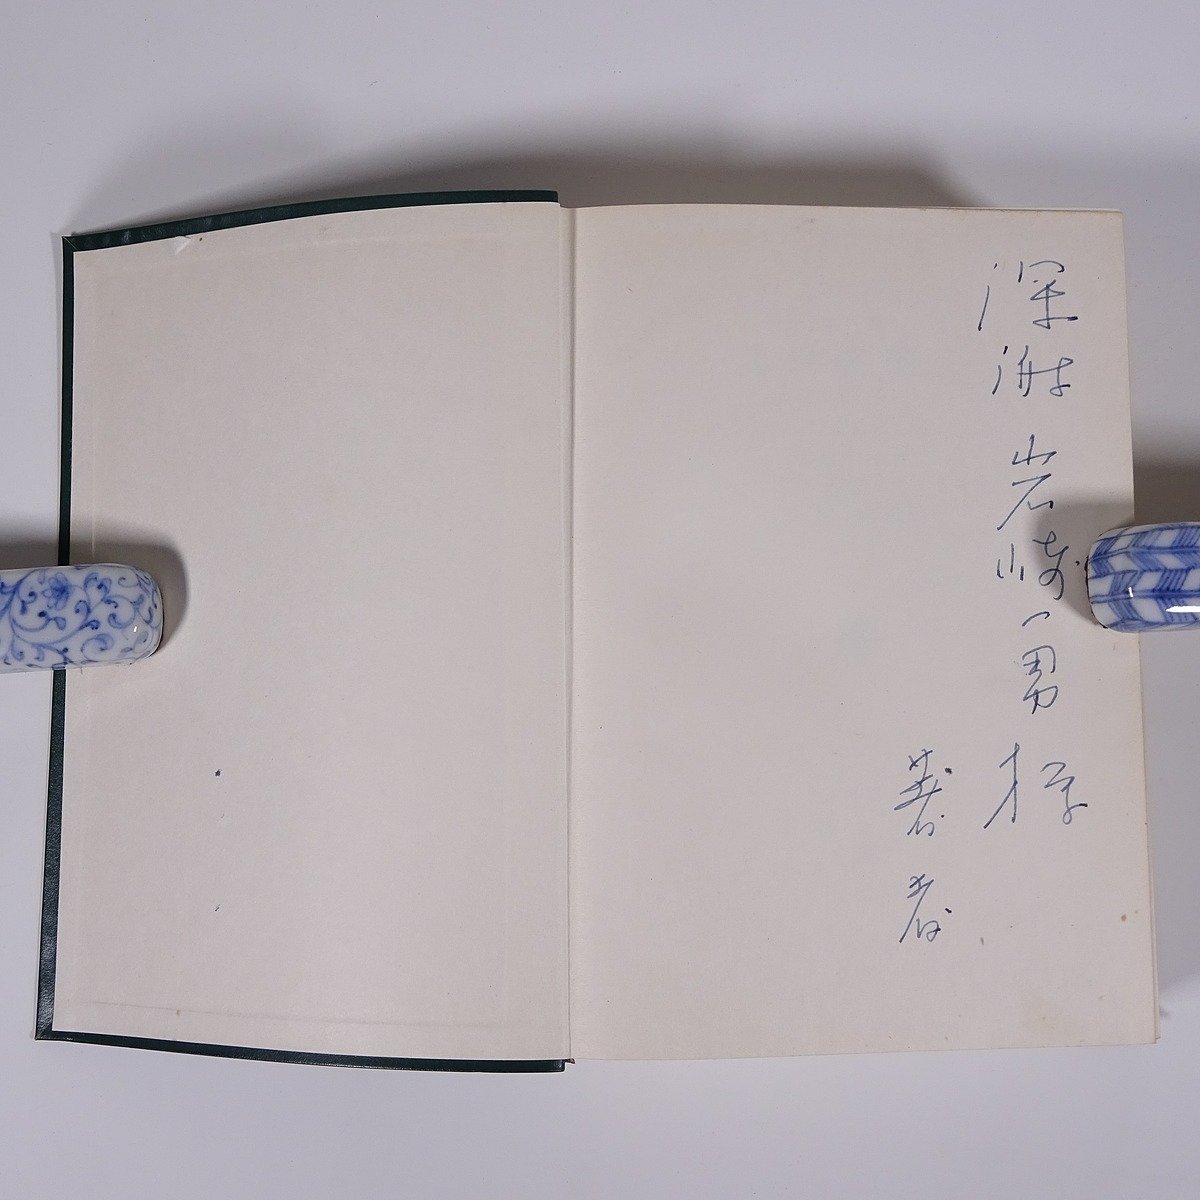 深謝 岩崎一男様
著者